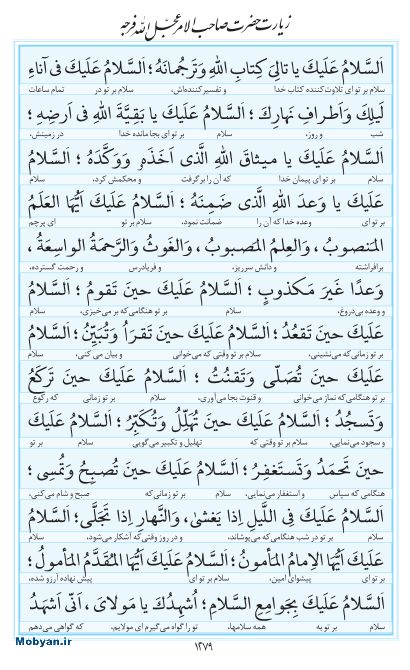 زیارت حضرت صاحب الامر عجل الله فرجه
اَلسَّلامُ عَلَیكَ یا تالِیَ كِتابِ اللهِ وَتَرجُمانَهُ ؛ اَلسَّلامُ عَلَیكَ فی آناءِ
سلام بر تو ای تلاوت‌کننده کتاب خدا و تفسیرکننده‌اش، سلام بر تو در تمام ساعات
لَیلِكَ وَاَطرافِ نَهارِكَ ؛ اَلسَّلامُ عَلَیكَ یا بَقِیَّةَ اللهِ فی اَرضِهِ ؛
شب و روز، سلام بر تو ای بجا مانده خدا در زمینش،
اَلسَّلامُ عَلَیكَ یا میثاقَ اللهِ الَّذی اَخَذَهُ وَوَكَّدَهُ ؛ اَلسَّلامُ
سلام بر تو ای پیمان خدا که آن را برگرفت و محکمش کرد، سلام
عَلَیكَ یا وَعدَ اللهِ الَّذی ضَمِنَهُ ؛ اَلسَّلامُ عَلَیكَ اَیُّهَا العَلَمُ
بر تو ای وعده خدا که آن را ضمانت نمود، سلام بر تو ای پرچم
المَنصوبُ ، وَالعِلمُ المَصبوبُ ، وَالغَوثُ وَالرَّحمَةُ الواسِعَةُ ،
برافراشته و دانش سرریز، و فریادرس و رحمت گسترده،
وَعدًا غَیرَ مَكذوبٍ ؛ اَلسَّلامُ عَلَیكَ حینَ تَقومُ ؛ اَلسَّلامُ
و وعده بی‌دروغ، سلام بر تو هنگامی که بر می‌خیزی، سلام
عَلَیكَ حینَ تَقعُدُ ؛ اَلسَّلامُ عَلَیكَ حینَ تَقرَأُ وَتُبَیِّنُ ؛ اَلسَّلامُ
بر تو زمانی که می‌نشینی، سلام بر تو وقتی که می‌خوانی و بیان می کنی، سلام
عَلَیكَ حینَ تُصَلّی وَتَقنُتُ ؛ اَلسَّلامُ عَلَیكَ حینَ تَركَعُ
بر تو هنگامی که نماز می‌خوانی و قنوت بجا می‌آوری، سلام بر تو زمانی که رکوع
وَتَسجُدُ ؛ اَلسَّلامُ عَلَیكَ حینَ تُهَلِّلُ وَتُكَبِّرُ ؛ اَلسَّلامُ عَلَیكَ
و سجود می‌نمایی، سلام بر تو وقتی که تهلیل و تکبیر می‌گویی سلام بر تو
حینَ تَحمَدُ وَتَستَغفِرُ ؛ اَلسَّلامُ عَلَیكَ حینَ تُصبِحُ وَتُمسی ؛
هنگامی که سپاس و استغفار می‌نمایی، سلام بر تو زمانی که صبح و شام می‌کنی،
اَلسَّلامُ عَلَیكَ فِی اللَّیلِ اِذا یَغشی ، وَالنَّهارِ اِذا تَجَلّی ؛ اَلسَّلامُ
سلام بر تو در شب هنگامی که می‌پوشاند، و در روز وقتی که آشکار می‌شود، سلام
عَلَیكَ اَیُّهَا الاِمامُ المَأمونُ ؛ اَلسَّلامُ عَلَیكَ اَیُّهَا المُقَدَّمُ المَأمولُ ؛
بر تو ای پیشوای امین، سلام بر تو ای پیش نهاده آرزو شده،
اَلسَّلامُ عَلَیكَ بِجَوامِعِ السَّلامِ ؛ اُشهِدُكَ یا مَولایَ ، اَنّی اَشهَدُ
سلام بر تو به همه سلامها، تو را گواه می‌گیرم ای مولایم، که گواهی می‌دهم
۱۲۷۹
Mobyan.ir